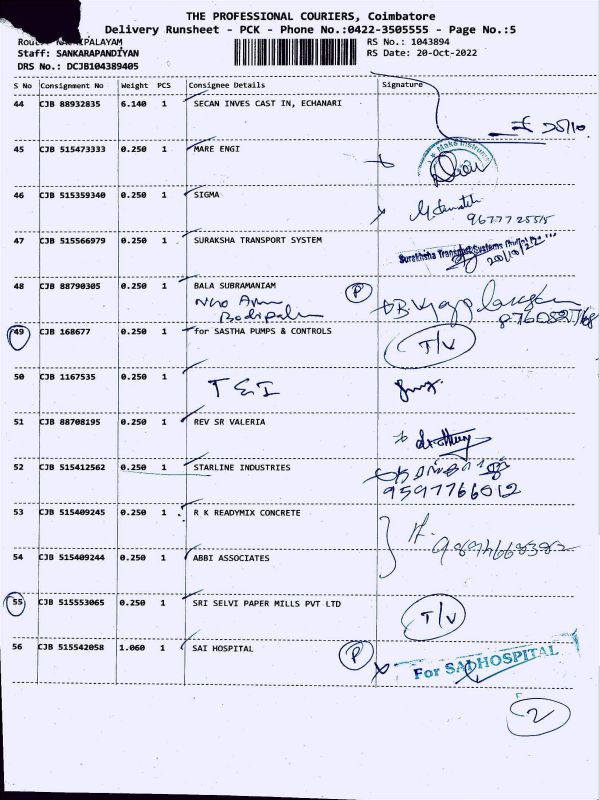 THE PROFESSIONAL COURIERS, Coimbatore
Delivery Runsheet - PCK - Phone No.:0422-3505555 - Page No.:5
RS No.: 1043894
Staff: SANKARAPANDIYAN RS Date: 20-Oct-2022
DRS No.: DCJB104389405
S No Consignment No Weight PCS Consignee Details Signature
44 CJB 88932835 6.140 1 SECAN INVES CAST IN, ECHANARI
25/10
45 CJB 515473333 0.250 1 MARE ENGI
46 CJB 515359340 0.250 1 SIGMA
9677725515
47 CJB 515566979 0.250 1 SURAKSHA TRANSPORT SYSTEM
20/10/22
48 CJB 88790305 0.250 1 BALA SUBRAMANIAM P
49 CJB 168677 0.250 1 for SASTHA PUMPS & CONTROLS T/V
50 CJB 1167535 0.250 1 T & I
51 CJB 88708195 0.250 1 REV SR VALERIA
52 CJB 515412562 0.250 1 STARLINE INDUSTRIES
9597766012
53 CJB 515409245 0.250 1 R K READYMIX CONCRETE
54 CJB 515409244 0.250 1 ABBI ASSOCIATES
55 CJB 515553065 0.250 1 SRI SELVI PAPER MILLS PVT LTD T/V
56 CJB 515542058 1.060 1 SAI HOSPITAL P
For SAI HOSPITAL
2